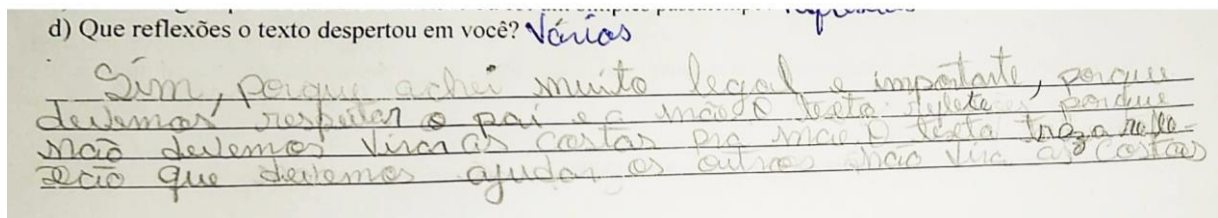 d) Que reflexões o texto despertou em você? Várias
Sim, porque achei muito legal e importante, porque
devemos respeitar o pai e a mãe O texto porque
não devemos virar as costas pra mãe O texto traz a refle-
xão que devemos ajudar os outros não vira as costas